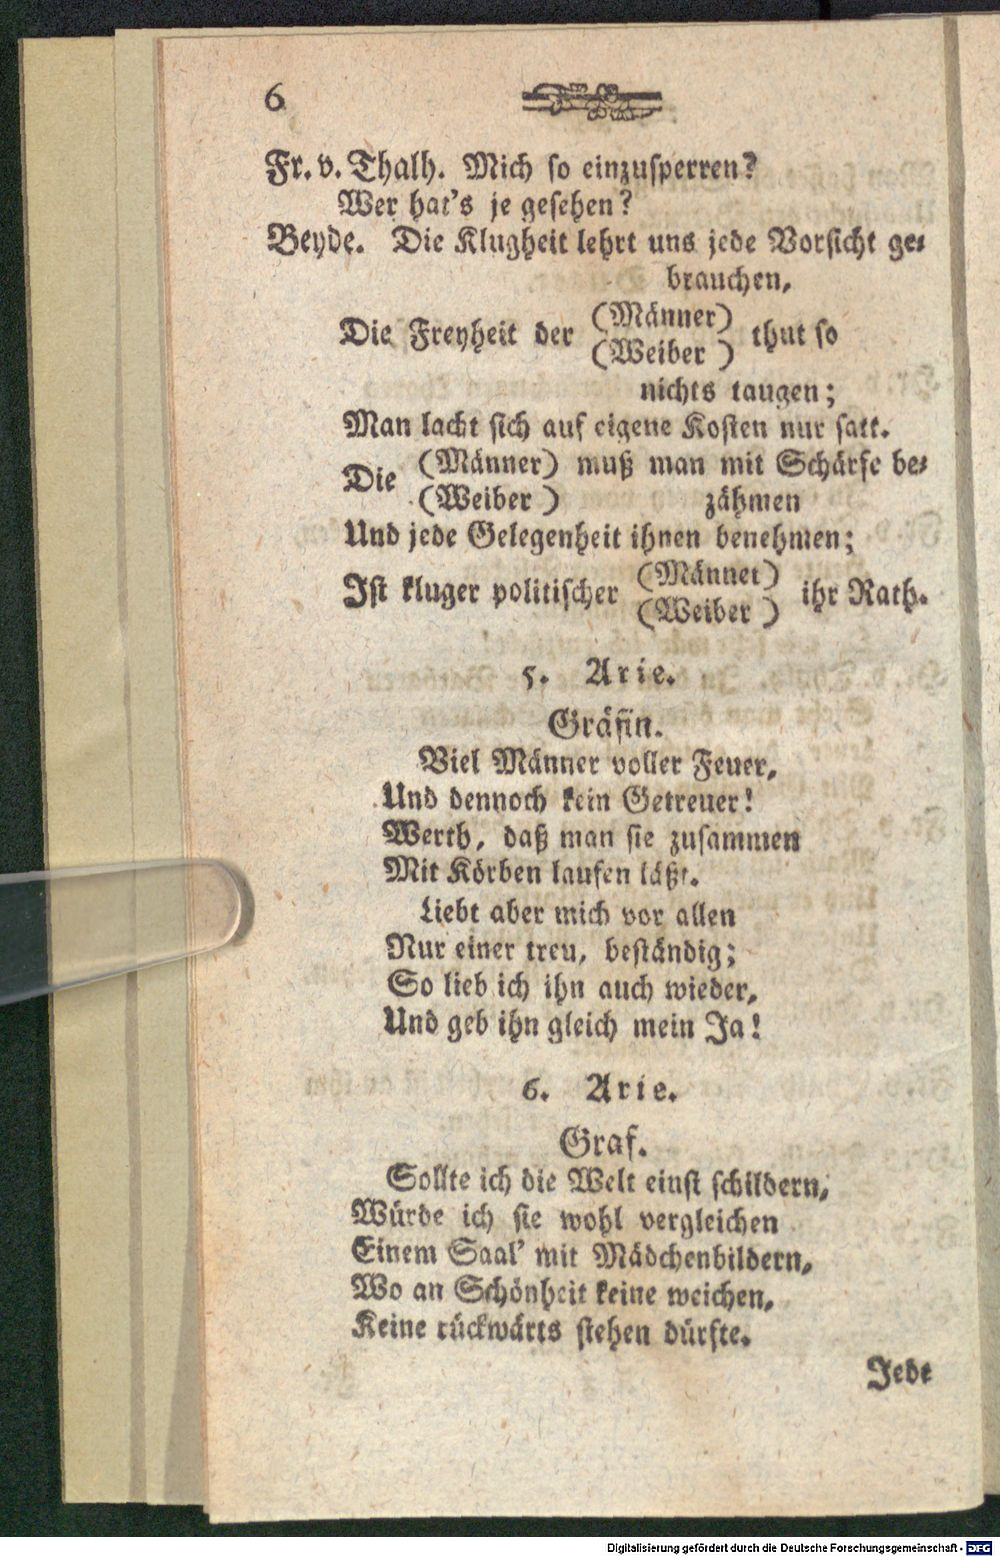 6
Fr. v. Thalh. Mich so einzusperren?
Wer hat's je gesehen?
Beyde. Die Klugheit lehrt uns jede Vorsicht ge-
brauchen,
(Männer)
Die Freyheit der thut so
(Weiber)
nichts taugen;
Man lacht sich auf eigene Kosten nur satt.
(Männer) muß man mit Schärfe be-
Die
(Weiber) zähmen
Und jede Gelegenheit ihnen benehmen;
(Männer)
Ist kluger politischer ihr Rath.
(Weiber)
5. Arie.
Gräfin.
Viel Männer voller Feuer,
Und dennoch kein Getreuer!
Werth, daß man sie zusammen
Mit Körben laufen läßt.
Liebt aber mich vor allen
Nur einer treu, beständig;
So lieb ich ihn auch wieder,
Und geb ihn gleich mein Ja!
6. Arie.
Graf.
Sollte ich die Welt einst schildern,
Würde ich sie wohl vergleichen
Einem Saal' mit Mädchenbildern,
Wo an Schönheit keine weichen,
Keine rückwärts stehen dürfte.
Jede
Digitalisierung gefördert durch die Deutsche Forschungsgemeinschaft - DFG